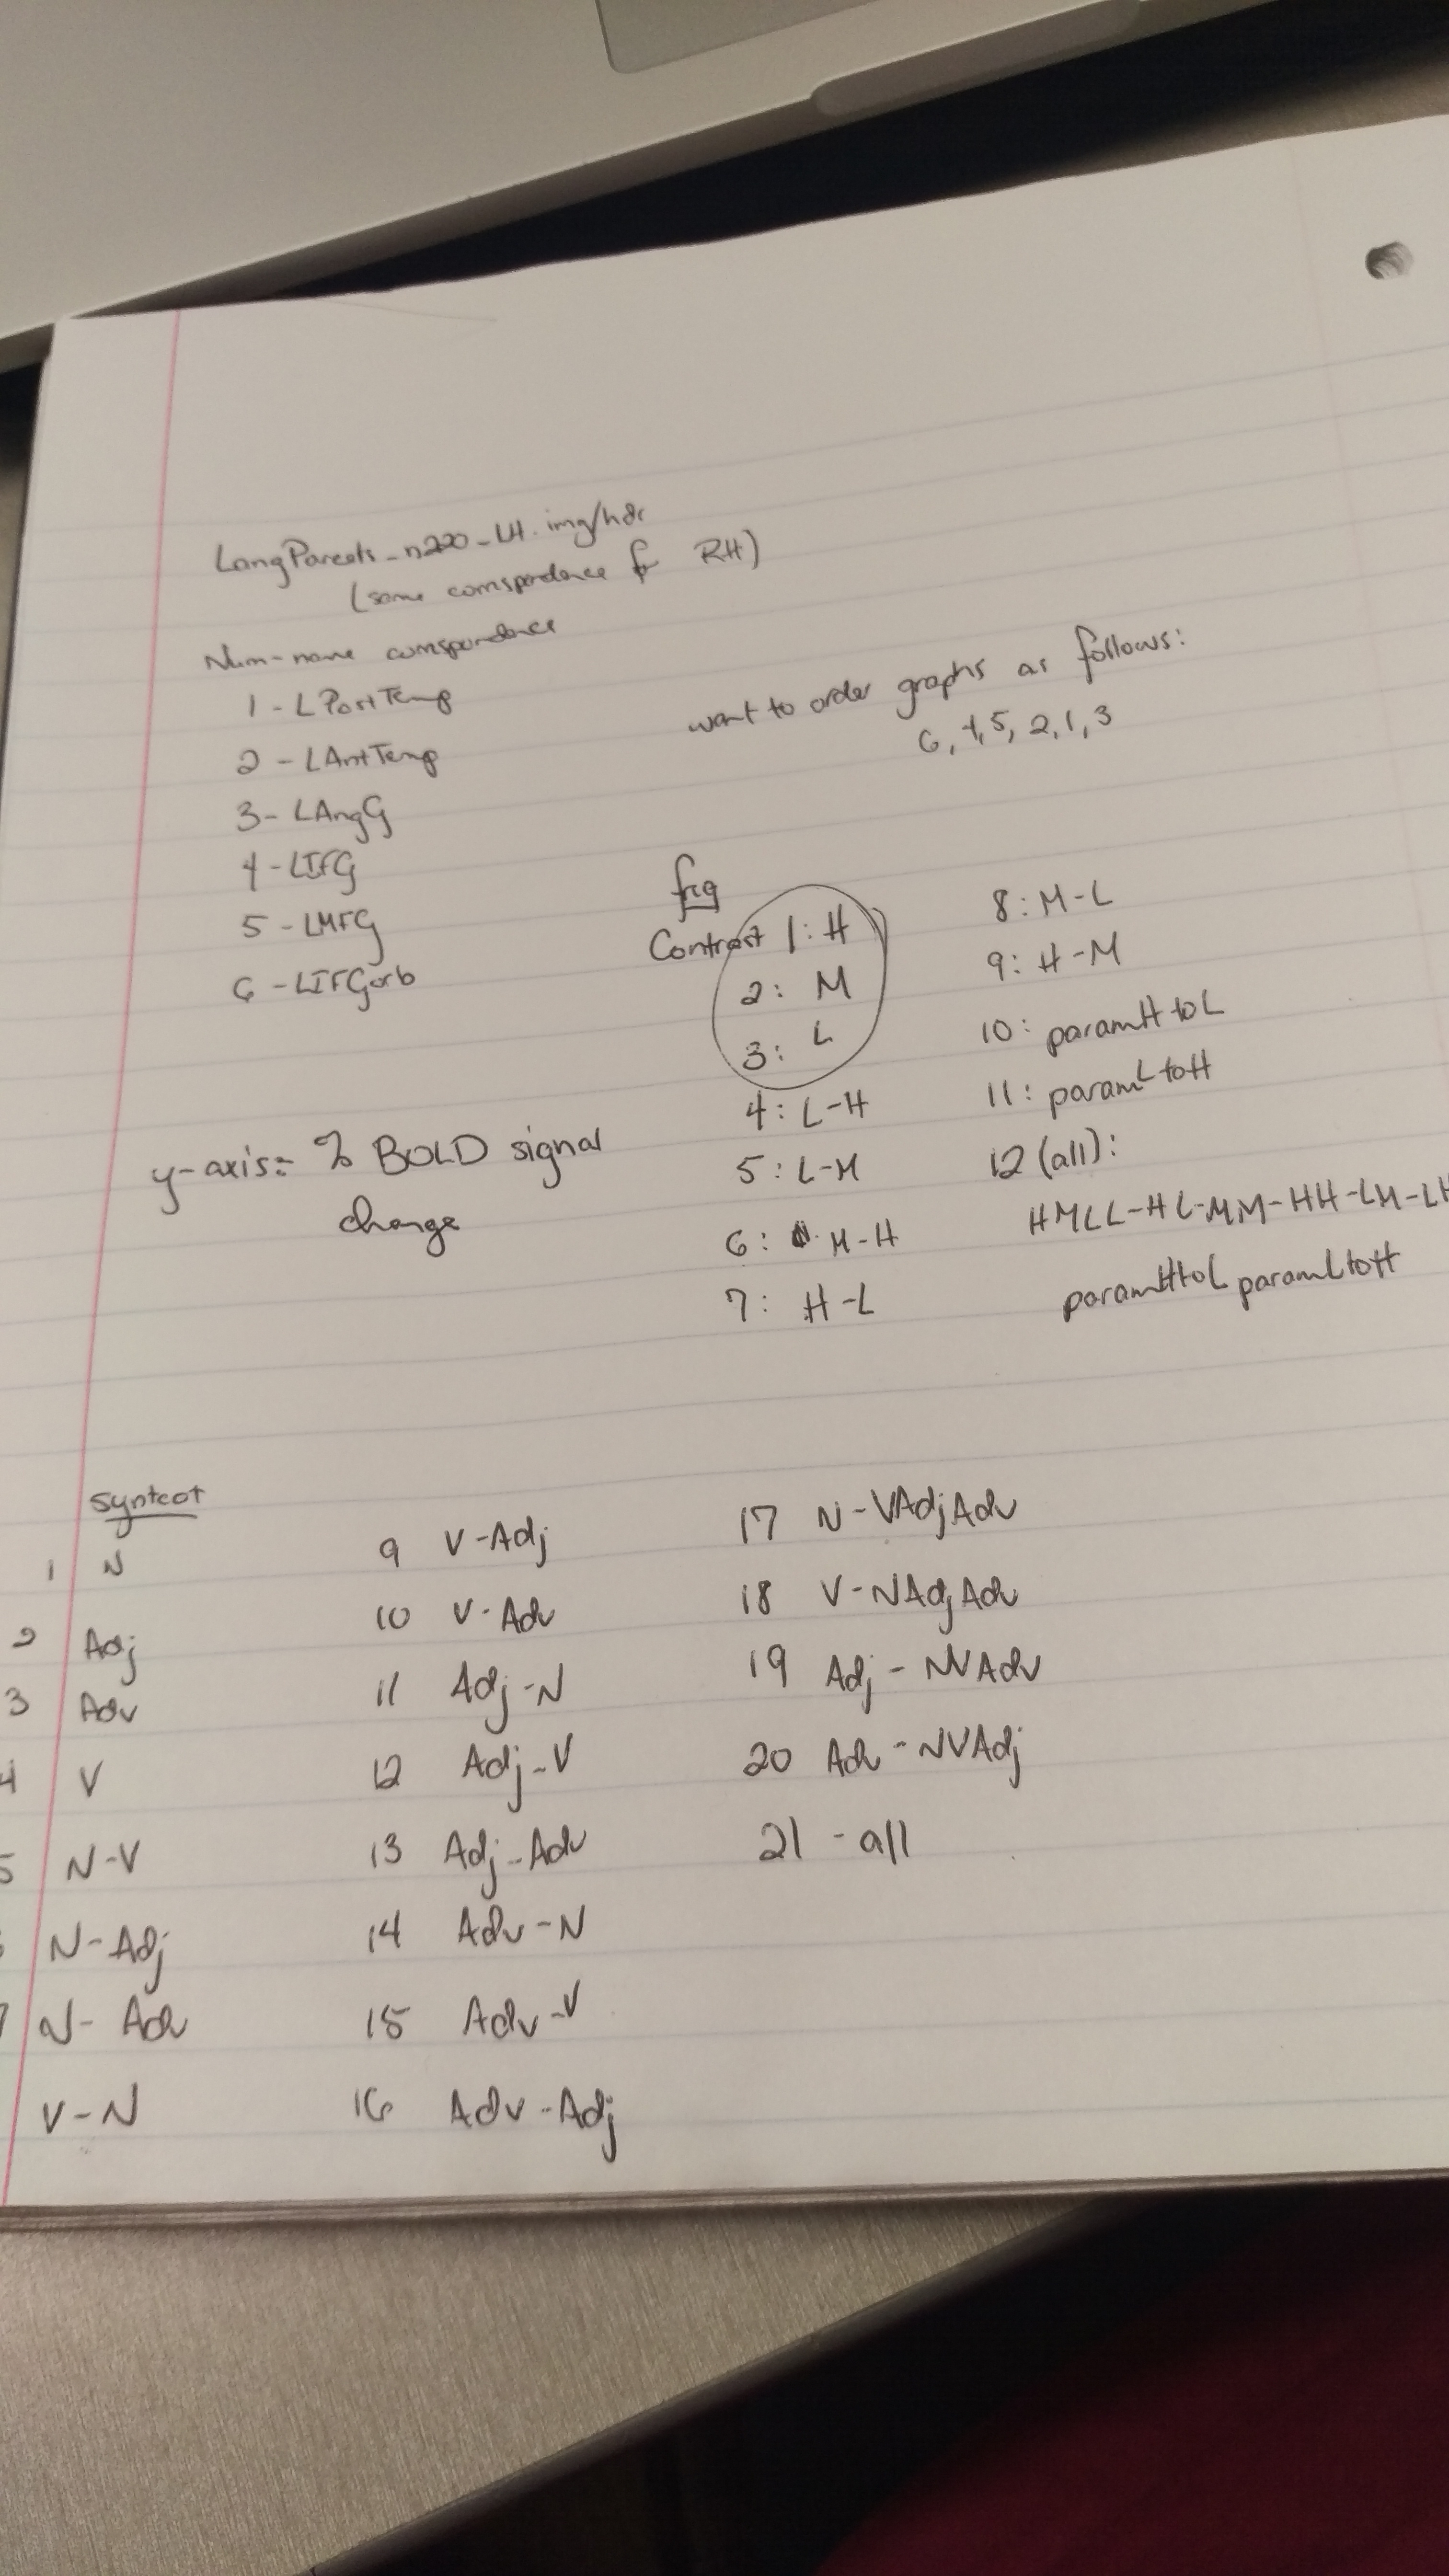 LangParcels_n220_LH.img/hdr
(same correspondence for RH)
Num-name correspondence
1 - LPostTemp
2 - LAntTemp
3 - LAngG
4 - LIFG
5 - LMFG
6 - LIFGorb
want to order graphs as follows:
6, 4, 5, 2, 1, 3
y-axis = % BOLD signal
change
Contrast 1: H
2: M
3: L
4: L-H
5: L-M
6: M-H
7: H-L
8: M-L
9: H-M
10: paramHtoL
11: paramLtoH
12 (all):
HMLL-HL-MM-HH-LM-LH
paramHtoL paramLtoH
syntcat
1 N
2 Adj
3 Adv
4 V
5 N-V
N-Adj
N-Adv
V-N
9 V-Adj
10 V-Adv
11 Adj-N
12 Adj-V
13 Adj-Adv
14 Adv-N
15 Adv-V
16 Adv-Adj
17 N-VAdjAdv
18 V-NAdjAdv
19 Adj-NVAdv
20 Adv-NVAdj
21 -all